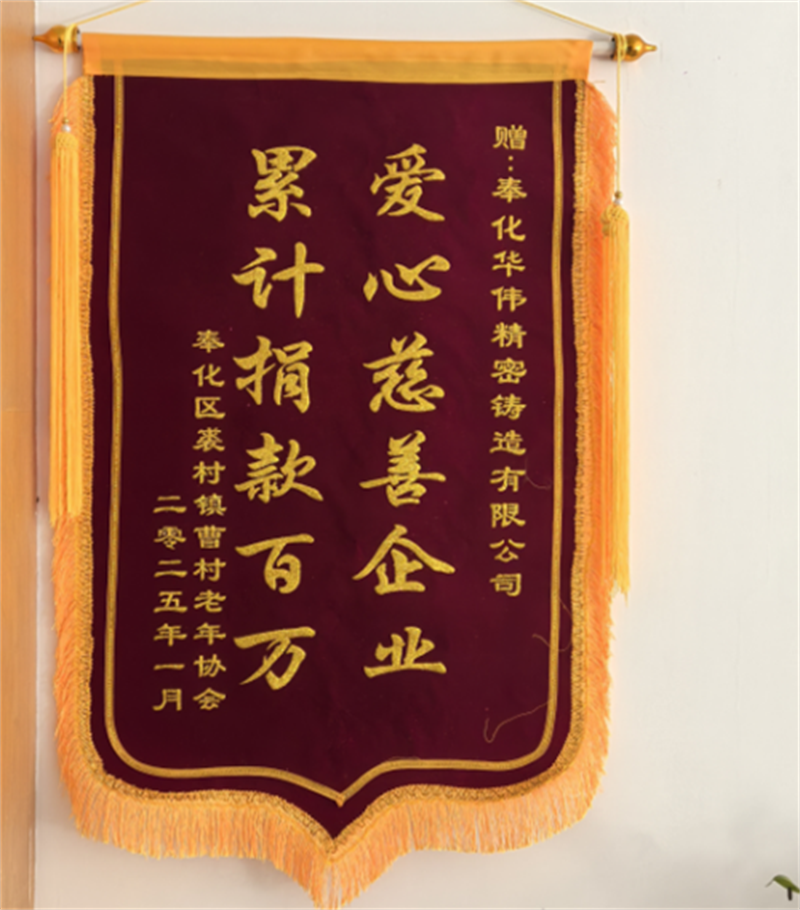 赠:奉化华伟精密铸造有限公司
爱心慈善企业
累计捐款百万
奉化区裘村镇曹村老年协会
二零二五年一月